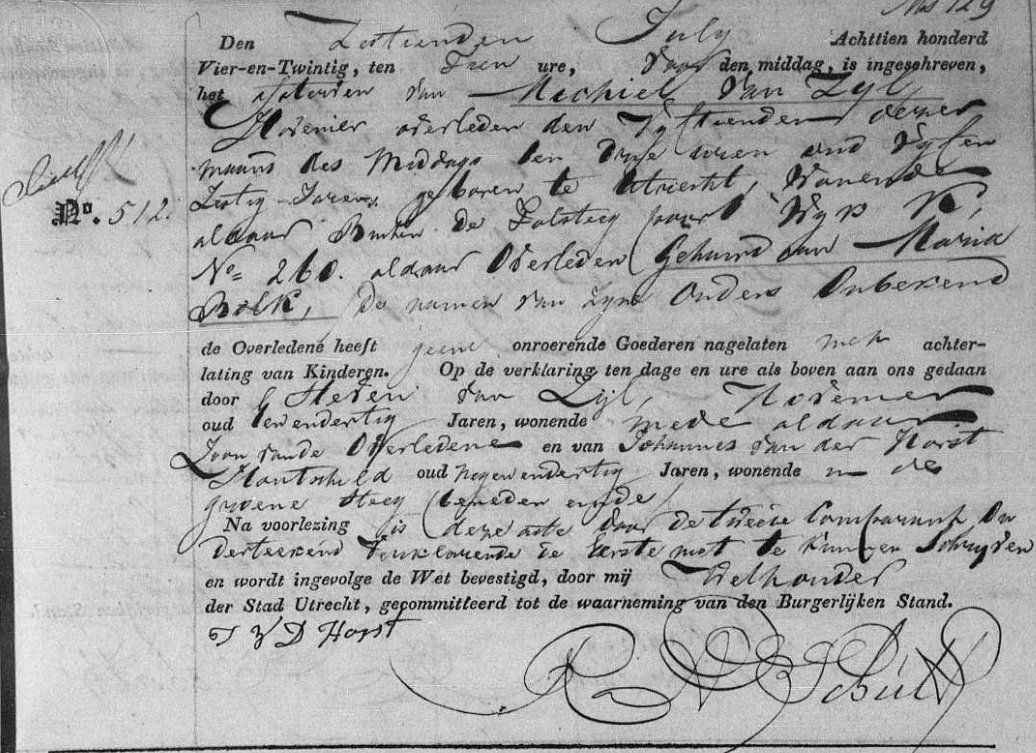 No 129
Den Zestienden July Achttien honderd
Vier-en-Twintig, ten Tien ure, voor den middag, is ingeschreven,
het afsterven van Michiel van Zyl,
Hovenier overleden den Vyftienden dezer
maand des Middags ten drie uren oud Vyf en
Zestig Jaren, geboren te Utrecht, Wonende
No. 512.
aldaar Buiten de Tolsteeg poort Wyk K,
No= 260. aldaar Overleden Gehuwd aan Maria
Bolk, de namen van zyne Ouders Onbekend
de Overledene heeft geene onroerende Goederen nagelaten met achter-
lating van Kinderen. Op de verklaring ten dage en ure als boven aan ons gedaan
door Steven van Zyl, Hovenier
oud twendertig Jaren, wonende mede aldaar
Zoon vande Overledene en van Johannes van der Horst
oud Negenendertig Jaren, wonende in de
groene Steeg beneden einde
Na voorlezing is deze acte door de tweede Comparant On
derteekend verklarende de Eerste niet te kunnen Schryven
en wordt ingevolge de Wet bevestigd, door mij Wethouder
der Stad Utrecht, gecommitteerd tot de waarneming van den Burgerlijken Stand.
J V D Horst